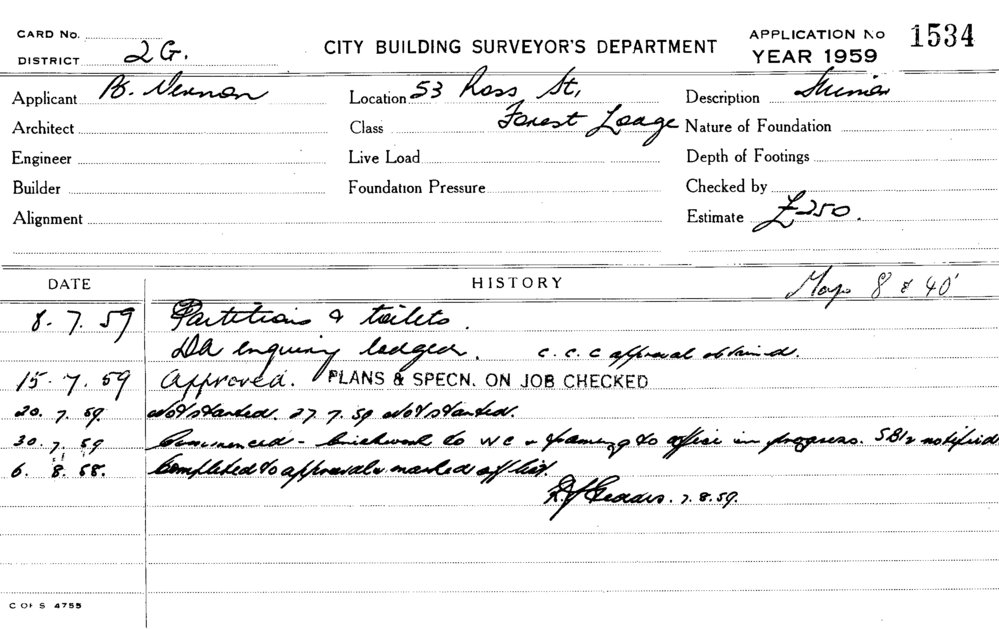 CARD No.
DISTRICT 2 G.
CITY BUILDING SURVEYOR'S DEPARTMENT
APPLICATION No 1534
YEAR 1959
Applicant Vernon
Location 53 Ross St,
Description Minor
Architect
Class Forest Lodge
Nature of Foundation
Engineer
Live Load
Depth of Footings
Builder
Foundation Pressure
Checked by
Alignment
Estimate £250.
DATE
HISTORY
8 & 40'
8. 7. 59 Partitions & toilets.
DA enquiry lodged. C. C. C approval obtained.
15. 7. 59 Approved. PLANS & SPECN. ON JOB CHECKED
20. 7. 59. Not started. 27 7. 59 Not started.
30. 7. 59 Commenced - brickwork to WC & framing to office in progress. notified
6. 8. 58. Completed to approval & marked off list.
7. 8. 59.
C OF S 4755